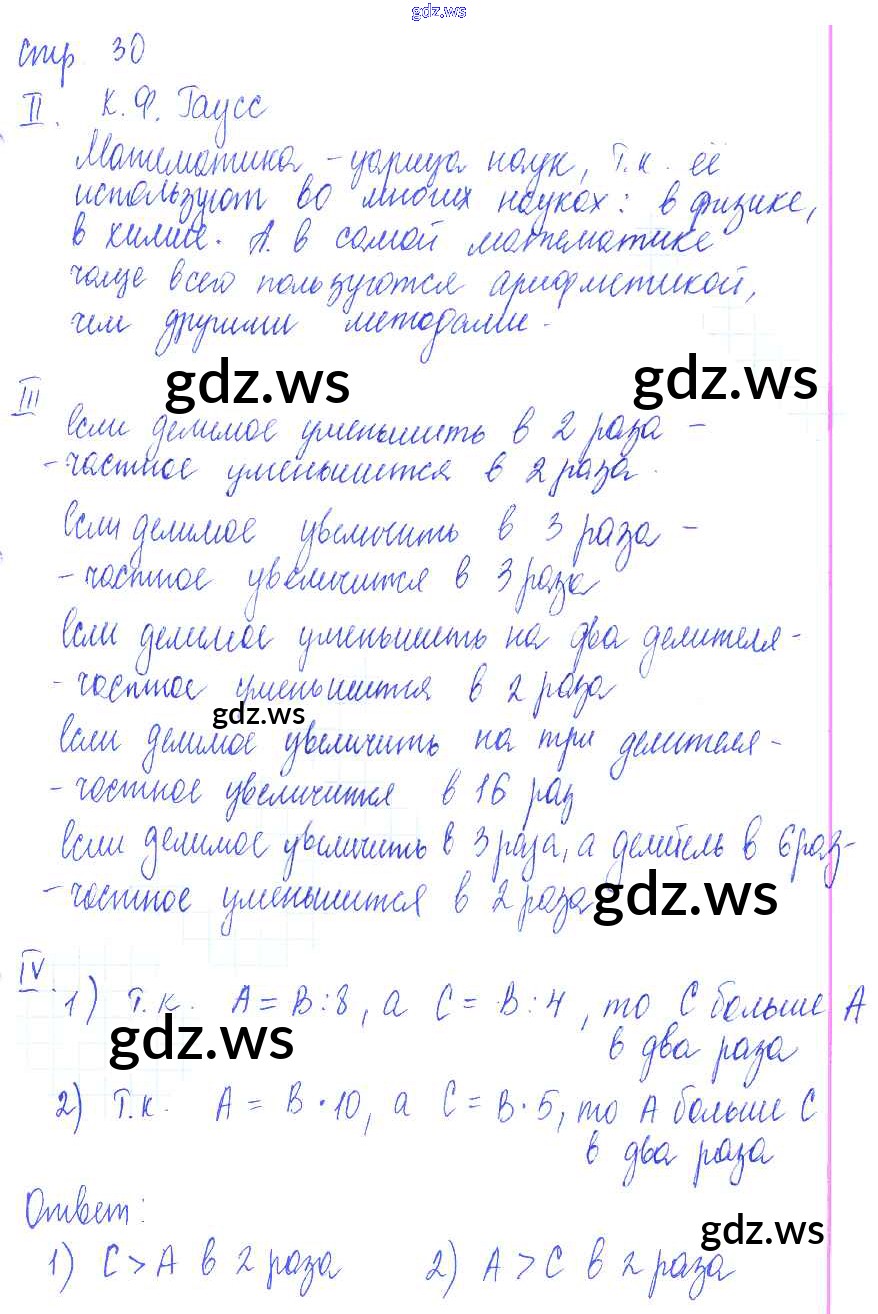 gdz.ws
стр 30
II. К.Ф. Гаусс
Математика - царица наук, т.к. её
используют во многих науках: в физике,
в химие. А в самой математике
чаще всего пользуются арифметикой,
чем другими методами.
gdz.ws
gdz.ws
III
Если делимое уменьшить в 2 раза -
- частное уменьшится в 2 раза.
Если делимое увеличить в 3 раза -
- частное увеличится в 3 раза
Если делимое уменьшить на два делителя -
- частное уменьшится в 2 раза
gdz.ws
Если делимое увеличить на три делителя -
- частное увеличится в 16 раз
Если делимое увеличить в 3 раза, а делитель в 6 раз -
- частное уменьшится в 2 раза
gdz.ws
IV.
1) Т.к. А = В : 8, а С = В : 4, то С больше А
в два раза
gdz.ws
2) Т.к. А = В · 10, а С = В · 5, то А больше С
в два раза
Ответ:
gdz.ws
1) С > А в 2 раза 2) А > С в 2 раза